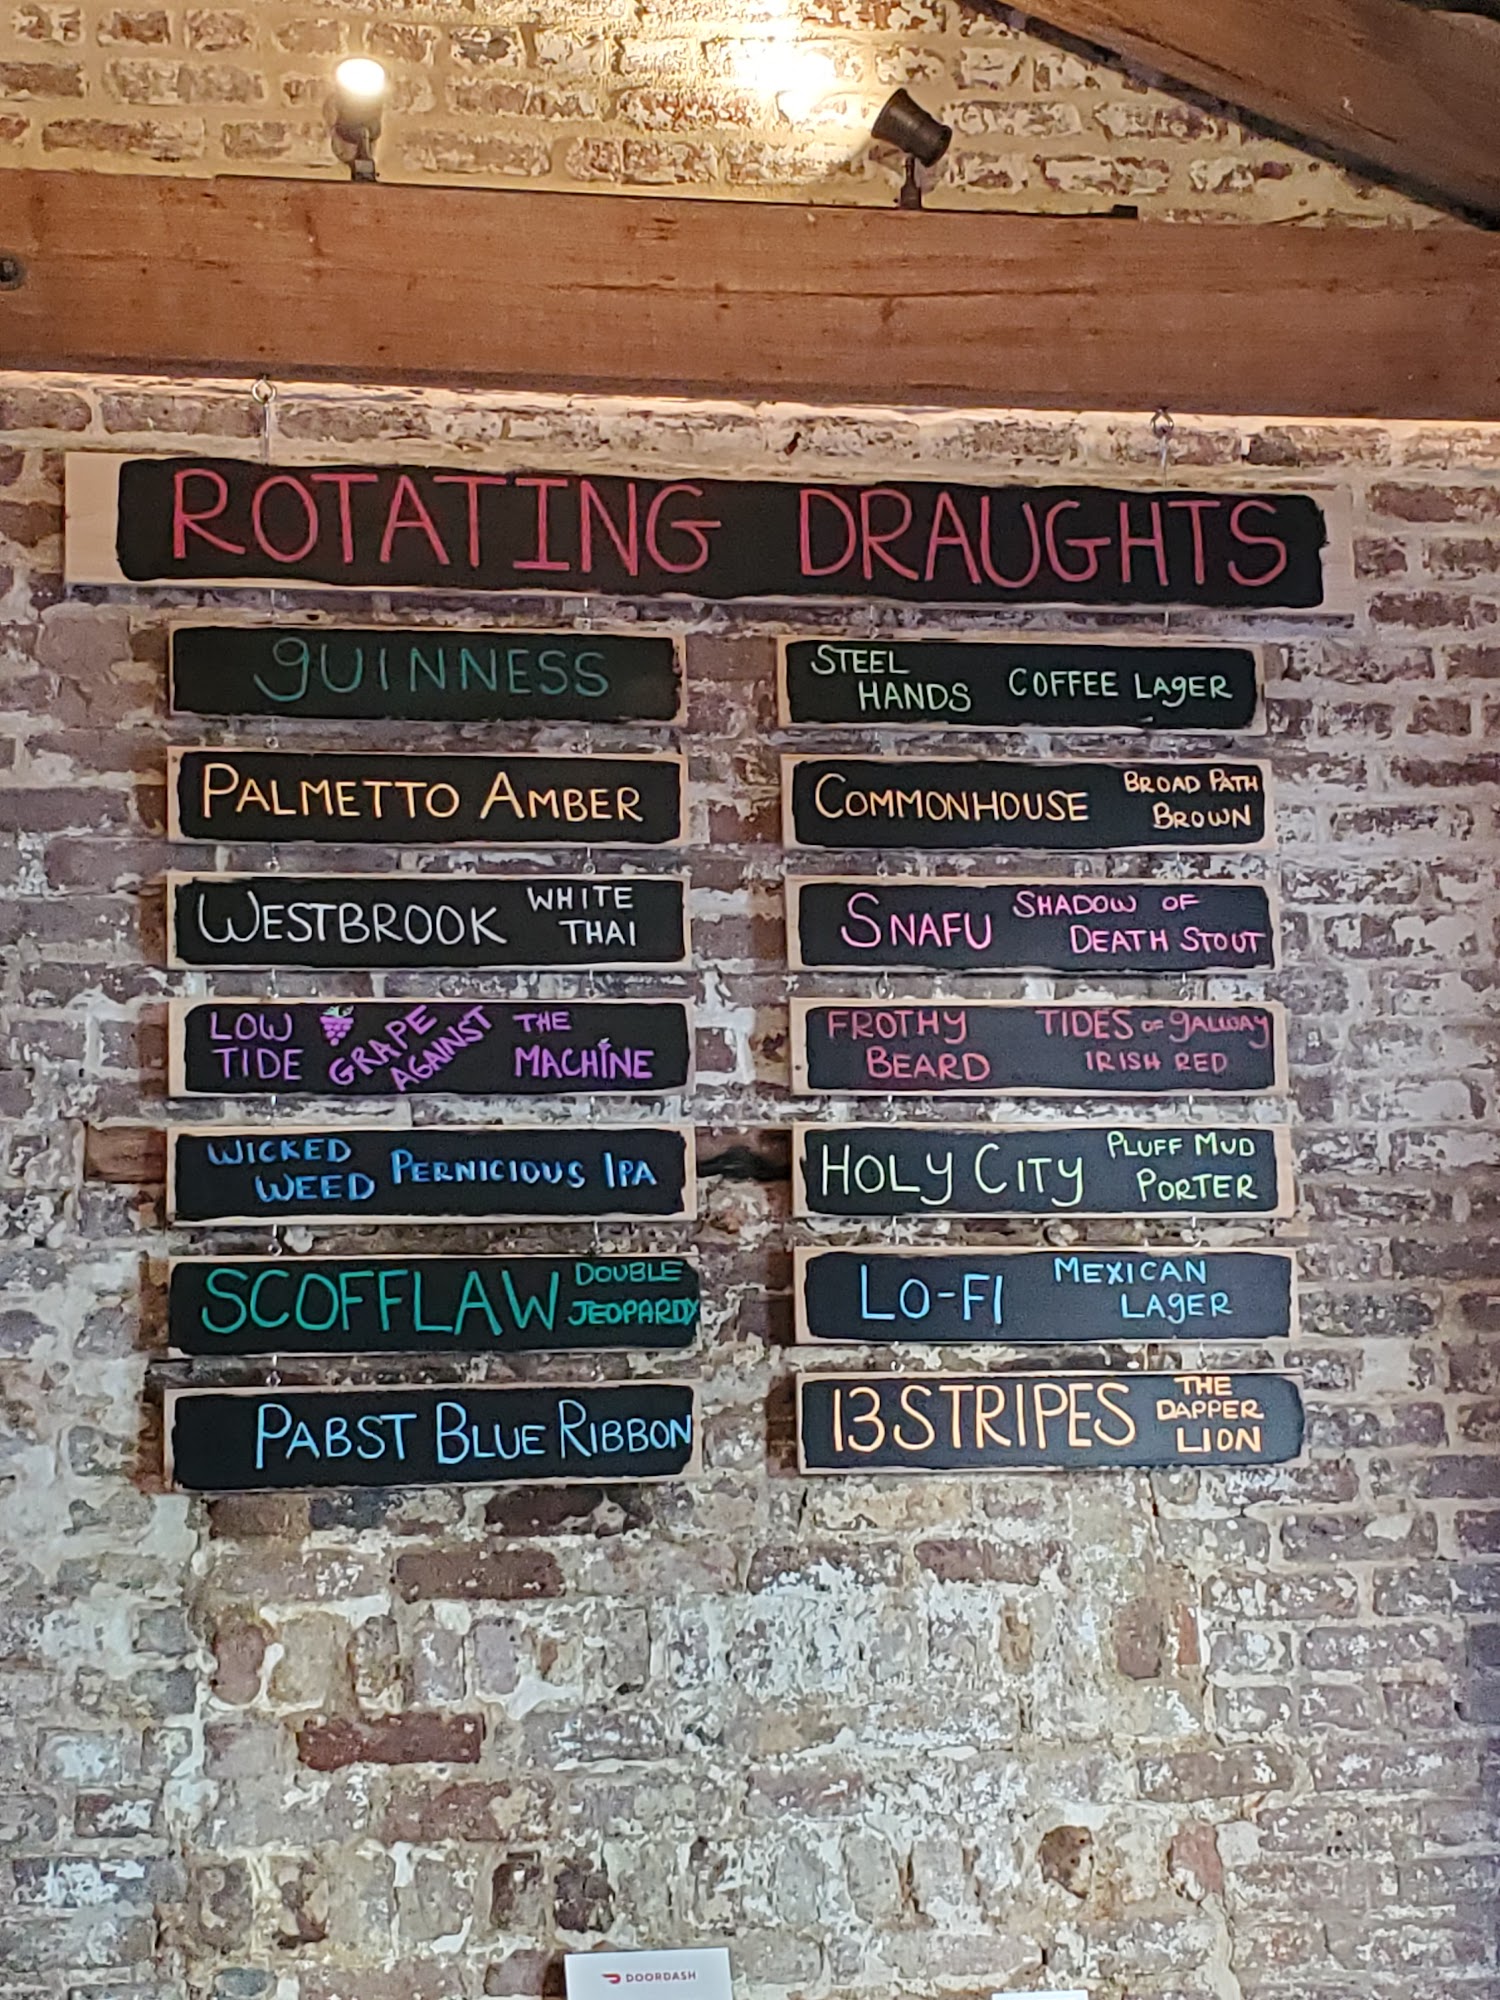 ROTATING DRAUGHTS
GUINNESS
PALMETTO AMBER
WESTBROOK WHITE
THAI
LOW GRAPE THE
TIDE AGAINST MACHINE
WICKED
WEED PERNICIOUS IPA
SCOFFLAW DOUBLE
JEOPARDY
PABST BLUE RIBBON
STEEL
HANDS COFFEE LAGER
COMMONHOUSE BROAD PATH
BROWN
SNAFU SHADOW OF
DEATH STOUT
FROTHY TIDES OF GALWAY
BEARD IRISH RED
HOLY CITY PLUFF MUD
PORTER
LO-FI MEXICAN
LAGER
13 STRIPES THE
DAPPER
LION
DOORDASH